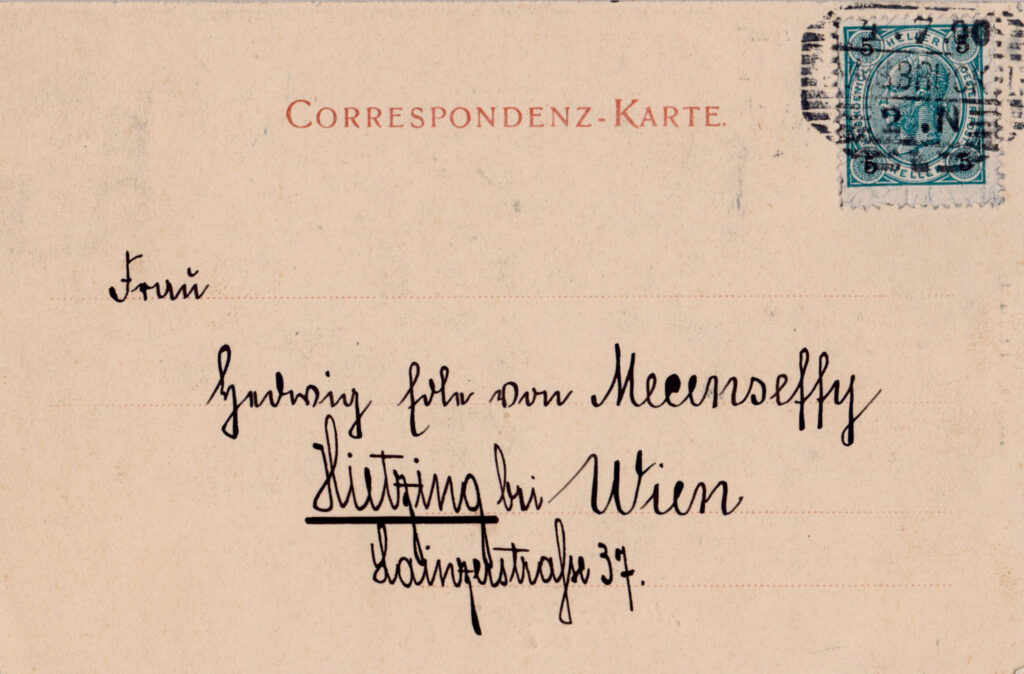 7.00
5 HELLER 5
2 .N
5 HELLER 5
CORRESPONDENZ-KARTE.
Fraŭ
Hedwig Edle von Mecenseffy
Hietzing bei Wien
Lainzerstraſse 37.